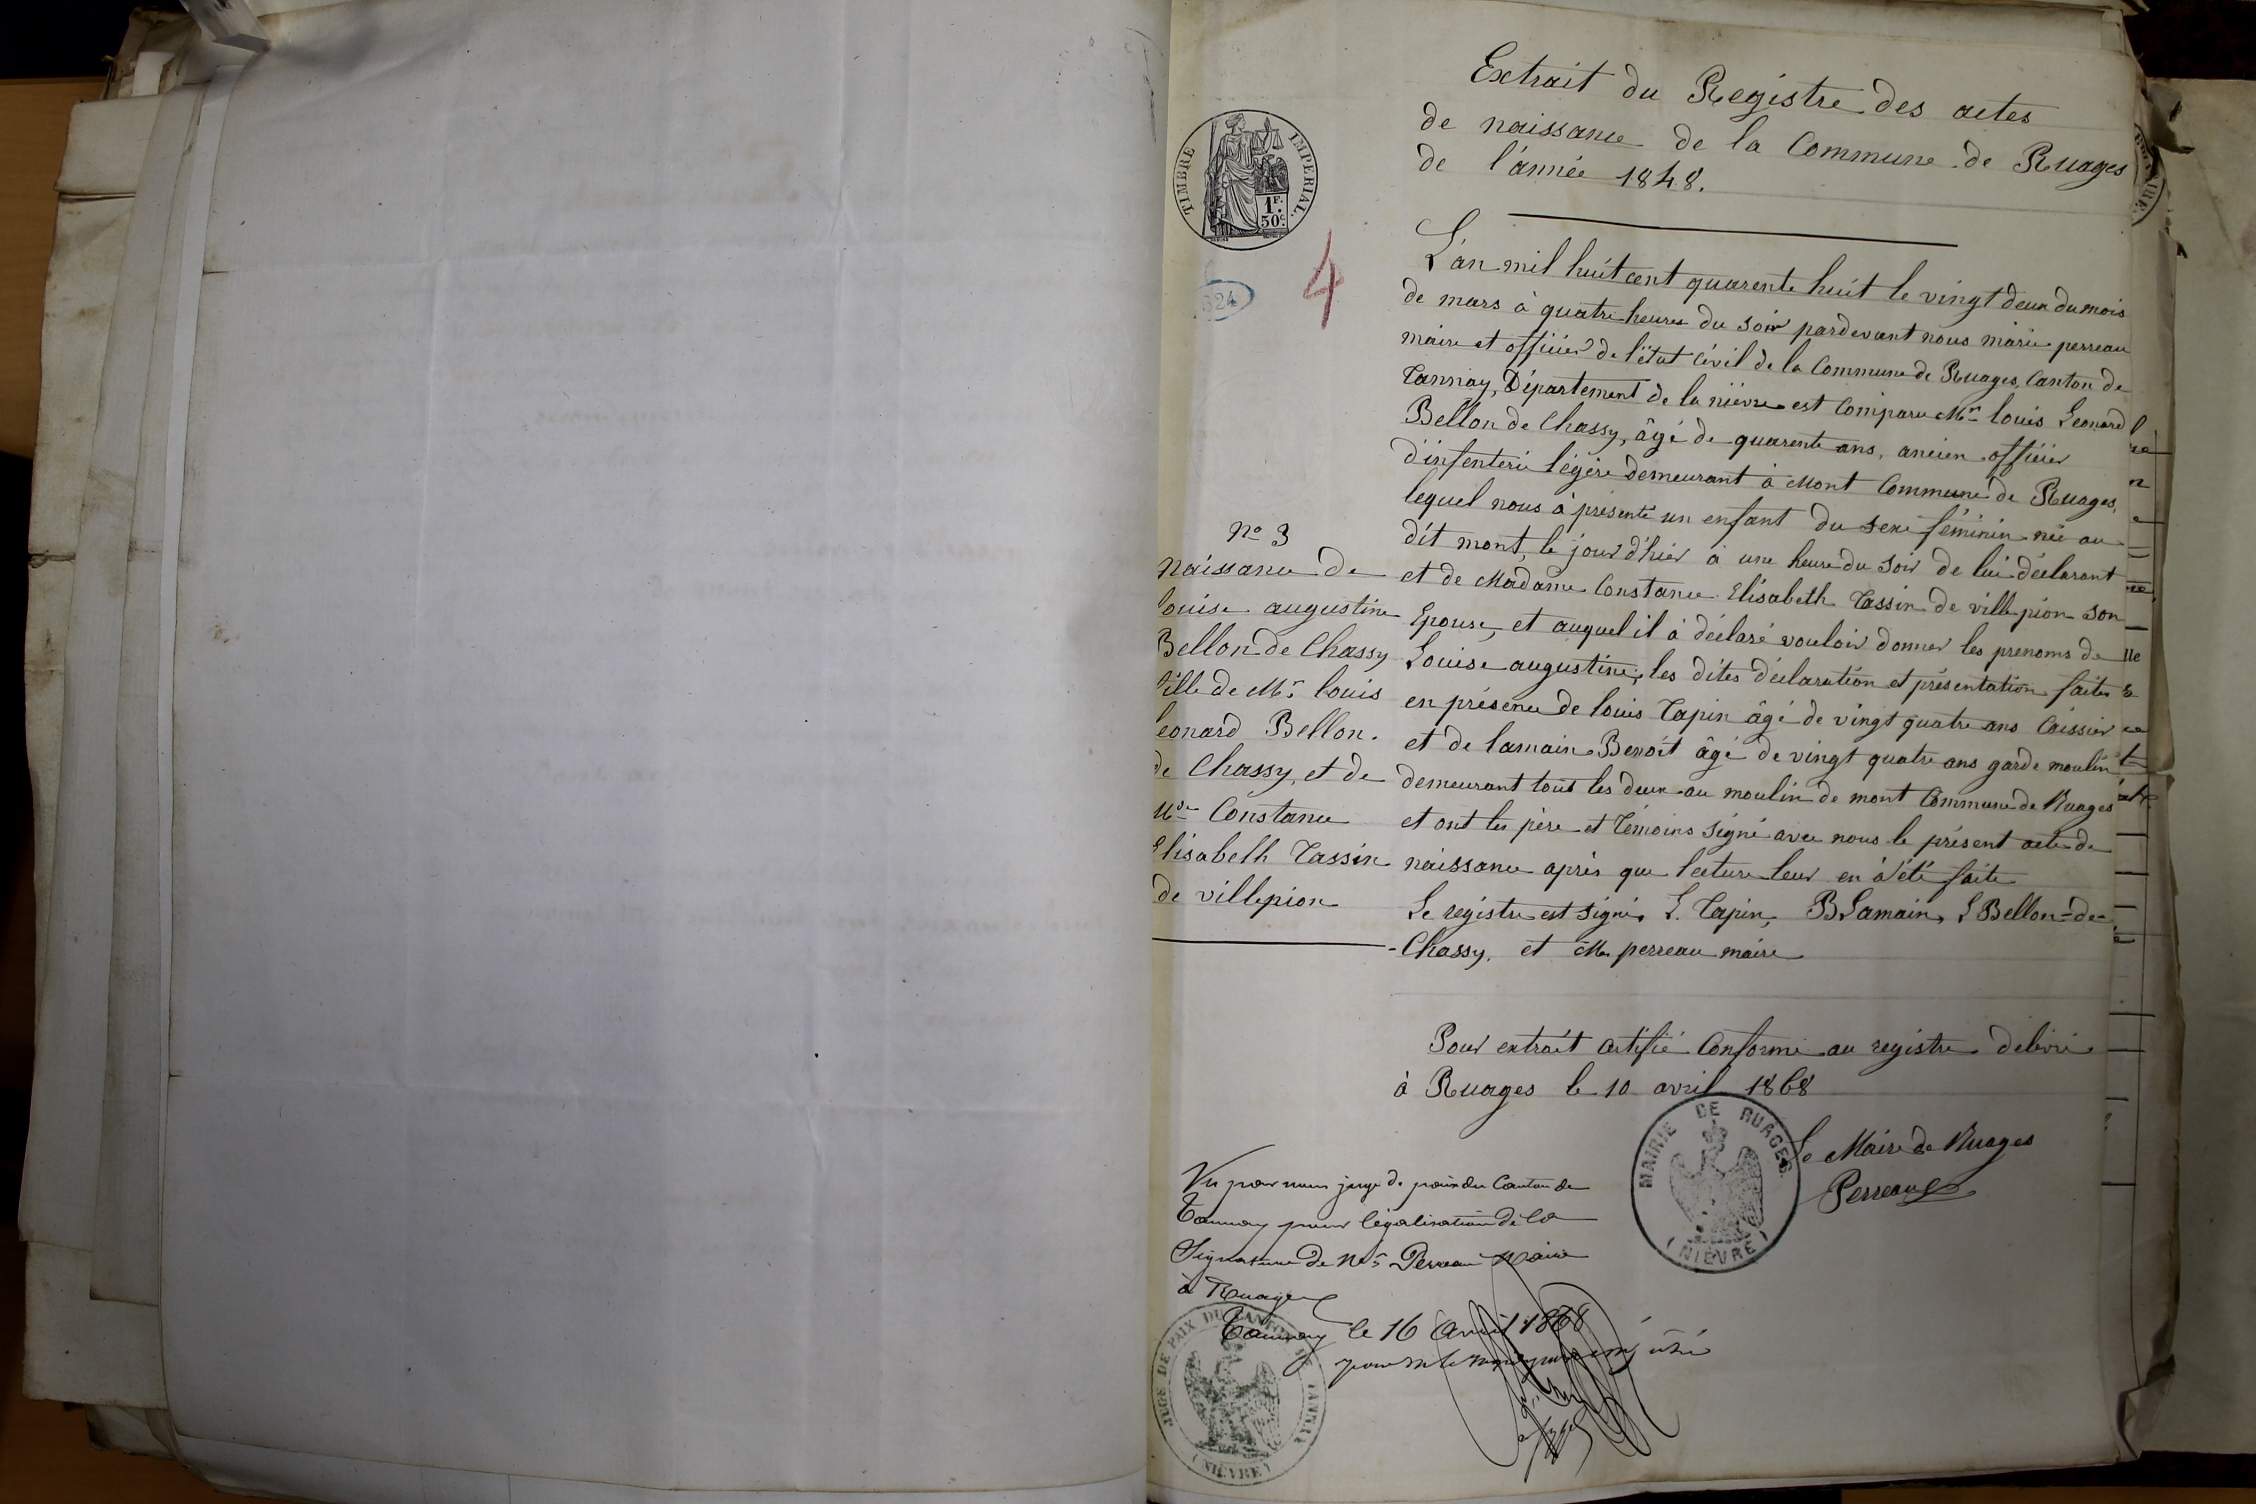 Extrait du Registre des actes
de naissance de la Commune de Ruages
de l'année 1848.
TIMBRE IMPERIAL.
1F.
50c.
324
4
L'an mil huit cent quarente huit le vingt deux du mois
de mars à quatre heures du soir pardevant nous marie perreau
maire et officier de l'état civil de la Commune de Ruages, Canton de
Tannay, Département de la nièvre est Comparu Mr louis Leonard
Bellon de Chassy, âgé de quarente ans, ancien officier
d'infenterie légère demeurant à Mont Commune de Ruages,
lequel nous à présenté un enfant du sexe féminin née au
dit mont, le jour d'hier à une heure du soir de lui déclarant
et de Madame Constance Elisabeth Tassin de villepion son
Epouse, et auquel il à déclaré vouloir donner les prenoms de
Louise augustine, les dites déclaration et présentation faites
en présence de louis Tapin âgé de vingt quatre ans Caissier
et de lamain Benoit âgé de vingt quatre ans garde moulin
demeurant tous les deux au moulin de mont Commune de Ruages
et ont les père et témoins signé avec nous le présent acte de
naissance après que lecture leur en à été faite
Le registre est signé, L. Tapin, B Lamain, L Bellon-de-
Chassy, et M perreau maire
No 3
Naissance de
louise augustine
Bellon de Chassy
fille de Mr louis
leonard Bellon
de Chassy, et de
Mde Constance
Elisabeth Tassin
de villepion
Pour extrait certifié Conforme au registre délivré
à Ruages le 10 avril 1868
Le Maire de Ruages
Perreau
MAIRIE DE RUAGES
(NIÈVRE)
Vu par nous juge de paix du Canton de
Tannay pour légalisation de la
Signature de Mr Perreau Maire
à Ruages
Tannay le 16 Avril 1868
JUGE DE PAIX DU CANTON DE TANNAY
(NIÈVRE)